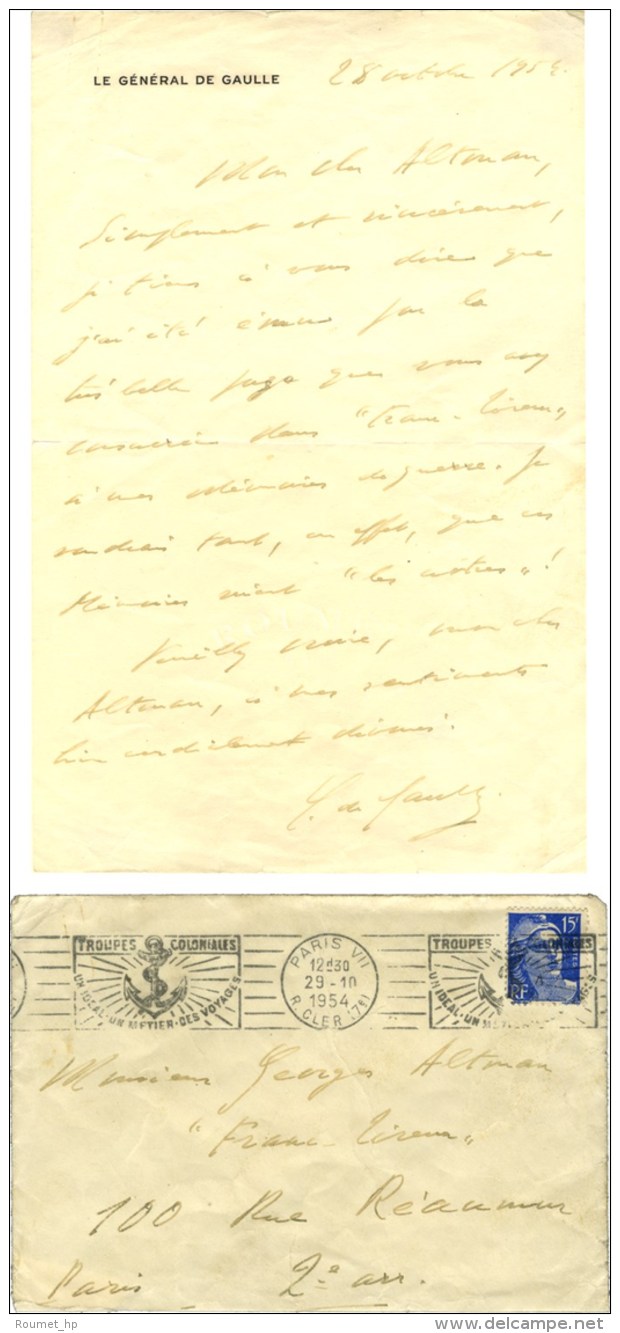 LE GÉNÉRAL DE GAULLE
28 octobre 1954.
Mon cher Altman,
Simplement et sincèrement,
je tiens à vous dire que
j'ai été ému par la
très belle page que vous avez
consacrée dans "Franc-Tireur"
à mes Mémoires de guerre. Je
voudrais tant, en effet, que ces
Mémoires soient "les nôtres"!
Veuillez croire, mon cher
Altman, à mes sentiments
bien cordialement dévoués.
C. de Gaulle.
TROUPES COLONIALES
UN IDEAL·UN METIER·DES VOYAGES
PARIS VII
12H30
29-10
1954
R. CLER (7e)
TROUPES COLONIALES
UN IDEAL·UN METIER·DES VOYAGES
15F
RF
Monsieur Georges Altman
"Franc-Tireur"
100 Rue Réaumur
Paris 2e arr.
Roumet_hp
www.delcampe.net